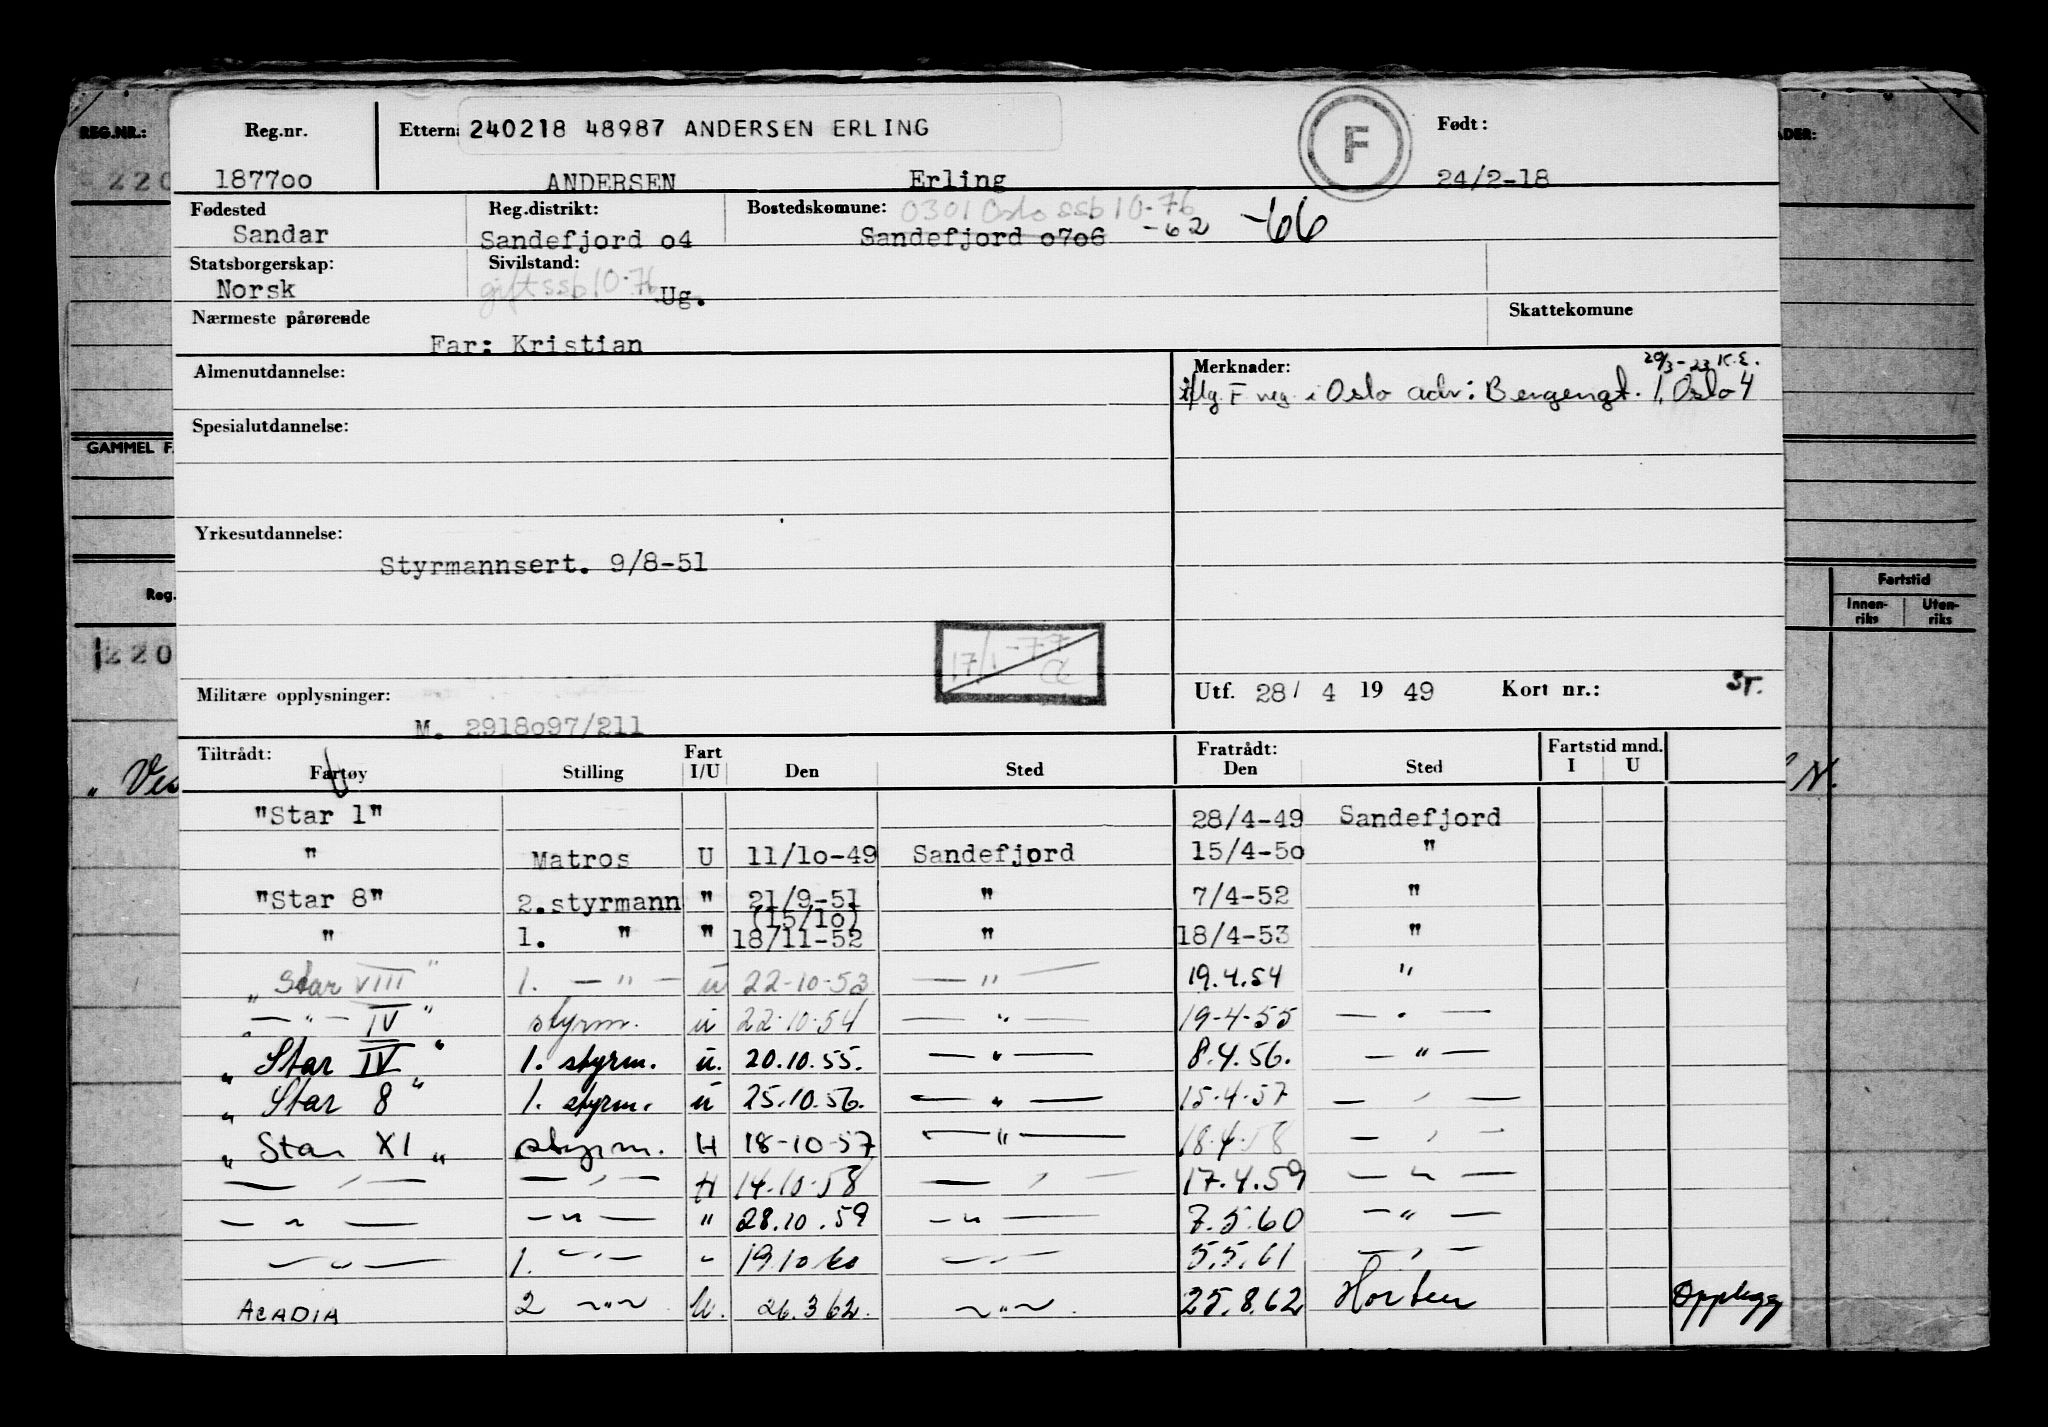 REG.NR.:
220
GAMMEL F.
Reg.
220
„ Ves
ADER:
Fartstid
Innen-
riks
Uten-
riks
N.
Reg.nr.
Ettern: 240218 48987 ANDERSEN ERLING
F
Født:
187700
ANDERSEN Erling
24/2-18
Fødested
Reg.distrikt:
Bostedskomune: 0301 Oslo ssb 10-76
Sandar
Sandefjord o4
Sandefjord o7o6 -62 -66
Statsborgerskap:
Sivilstand:
Norsk
gift ssb 10-76 Ug.
Nærmeste pårørende
Skattekomune
Far: Kristian
Almenutdannelse:
Merknader: 20/3-23 K.E.
iflg. F reg. i Oslo adr: Bergengt. 1, Oslo 4
Spesialutdannelse:
Yrkesutdannelse:
Styrmannsert. 9/8-51
17/1-77
Militære opplysninger:
Utf. 28/ 4 19 49 Kort nr.: ST.
M. 2918o97/211
Tiltrådt:
Fartøy Stilling Fart I/U Den Sted Fratrådt: Den Sted Fartstid mnd. I U
"Star 1" 28/4-49 Sandefjord
" Matros U 11/1o-49 Sandefjord 15/4-5o "
"Star 8" 2.styrmann " 21/9-51 " 7/4-52 "
(15/1o)
" 1. " " 18/11-52 " 18/4-53 "
„Star VIII" 1. — " — u 22-10-53 — " — 19.4.54 "
„— " — IV" styrm. u 22.10.54 — " — 19-4-55 — " —
„Star IV" 1. styrm. u. 20.10.55. — " — 8.4.56. — " —
„Star 8" 1. styrm. u 25.10.56. — " — 15.4.57 — " —
„Star XI„ styrm. H 18-10-57 — " — 18.4.58 — " —
— " — — " — H 14.10.58 — " — 17.4.59 — " —
— " — — " — " 28.10.59 — " — 7.5.60 — " —
— " — 1. — " — " 19.10 60 — " — 5.5.61 — " —
ACADIA 2 — " — U. 26.3 62. — " — 25.8.62 Horten Opplegg